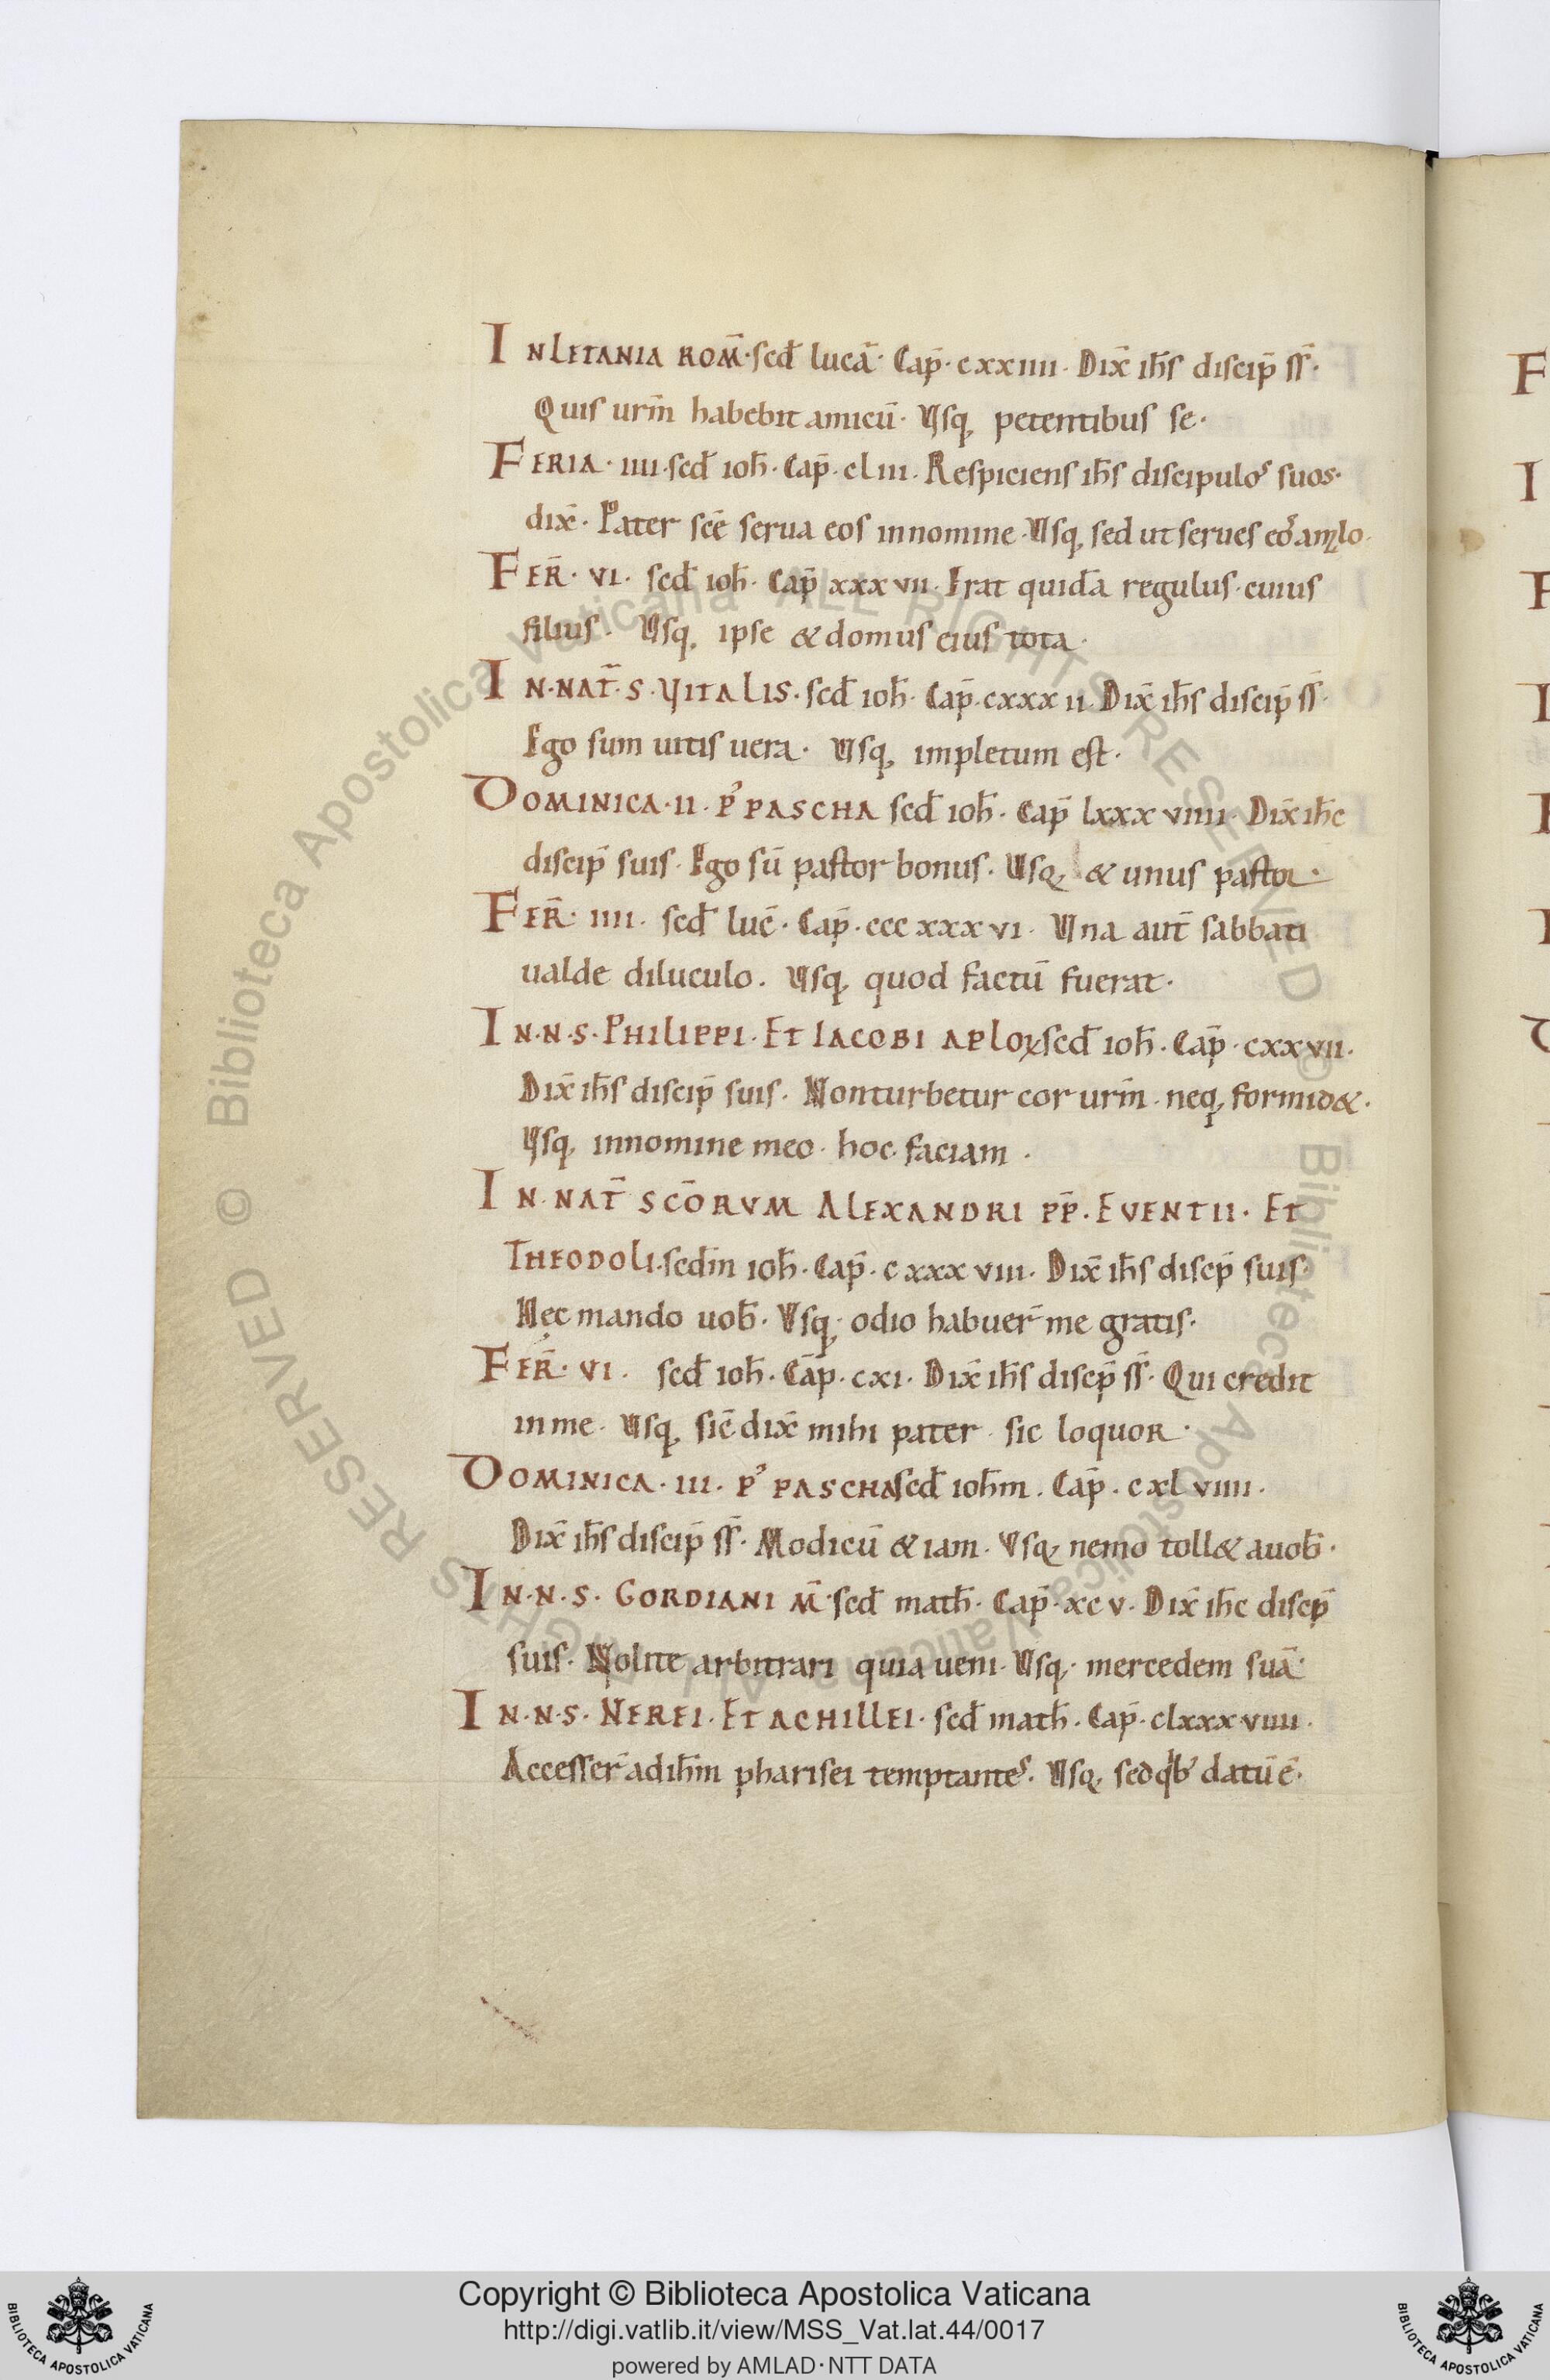 IN LETANIA ROM̄. scd̄ lucā. Cap̄. cxxiiii. Dix̄ ih̄s discip̄ ss̄.
Quis ur̄m habebit amicū. Usq; petentibus se.
FERIA. IIII. scd̄ ioh̄. Cap̄. cliii. Respiciens ih̄s discipulos suos.
dix̄. Pater scē serua eos innomine. Usq; sed ut serues eos
FER̄. VI. scd̄ ioh̄. Cap̄ xxxvii. Erat quidā regulus. cuius
filius. Usq; ipse & domus eius tota.
IN. NAT̄. S. VITALIS. scd̄ ioh̄. Cap̄. cxxxii. Dix̄ ih̄s discip̄ ss̄.
Ego sum uitis uera. Usq; impletum est.
DOMINICA. II. P' PASCHA scd̄ ioh̄. Cap̄ lxxxviiii. Dix̄ ih̄c
discip̄ suis. Ego sū pastor bonus. Usq; & unus pastor.
FER̄. IIII. scd̄ luc̄. Cap̄. cccxxxvi. Una aut̄ sabbati
ualde diluculo. Usq; quod factū fuerat.
IN. N. S. PHILIPPI. ET IACOBI APLOꝜ scd̄ ioh̄. Cap̄. cxxvii.
Dix̄ ih̄s discip̄ suis. Nonturbetur cor ur̄m. neq; formid&.
Usq; innomine meo. hoc faciam.
IN. NAT̄ SC̄ORVM ALEXANDRI PP̄. EVENTII. ET
THEODOLI. scd̄m ioh̄. Cap̄. cxxxviii. Dix̄ ih̄s discp̄ suis.
Hęc mando uob̄. Usq; odio habuer̄ me gratis.
FER̄. VI. scd̄ ioh̄. Cāp. cxi. Dix̄ ih̄s discp̄ ss̄. Qui credit
in me. Usq; sic̄ dix̄ mihi pater. sic loquor.
DOMINICA. III. P' PASCHA scd̄ ioh̄m. Cap̄. cxlviiii.
Dix̄ ih̄s discip̄ ss̄. Modicū & iam. Usq; nemo toll& auob̄.
IN. N. S. GORDIANI M̄. scd̄ math̄. Cap̄. xcv. Dix̄ ih̄c discp̄
suis. Nolite arbitrari quia ueni. Usq; mercedem suā.
IN. N. S. NEREI. ET ACHILLEI. scd̄ math̄. Cap̄. clxxxviiii.
Accesser̄ adih̄m pharisei temptantes. Usq; sed qb' datū ē.
F
I
F
I
F
I
D
© Biblioteca Apostolica Vaticana ALL RIGHTS RESERVED © Biblioteca Apostolica Vaticana ALL RIGHTS RESERVED
Copyright © Biblioteca Apostolica Vaticana
http://digi.vatlib.it/view/MSS_Vat.lat.44/0017
powered by AMLAD·NTT DATA
BIBLIOTECA APOSTOLICA VATICANA
BIBLIOTECA APOSTOLICA VATICANA